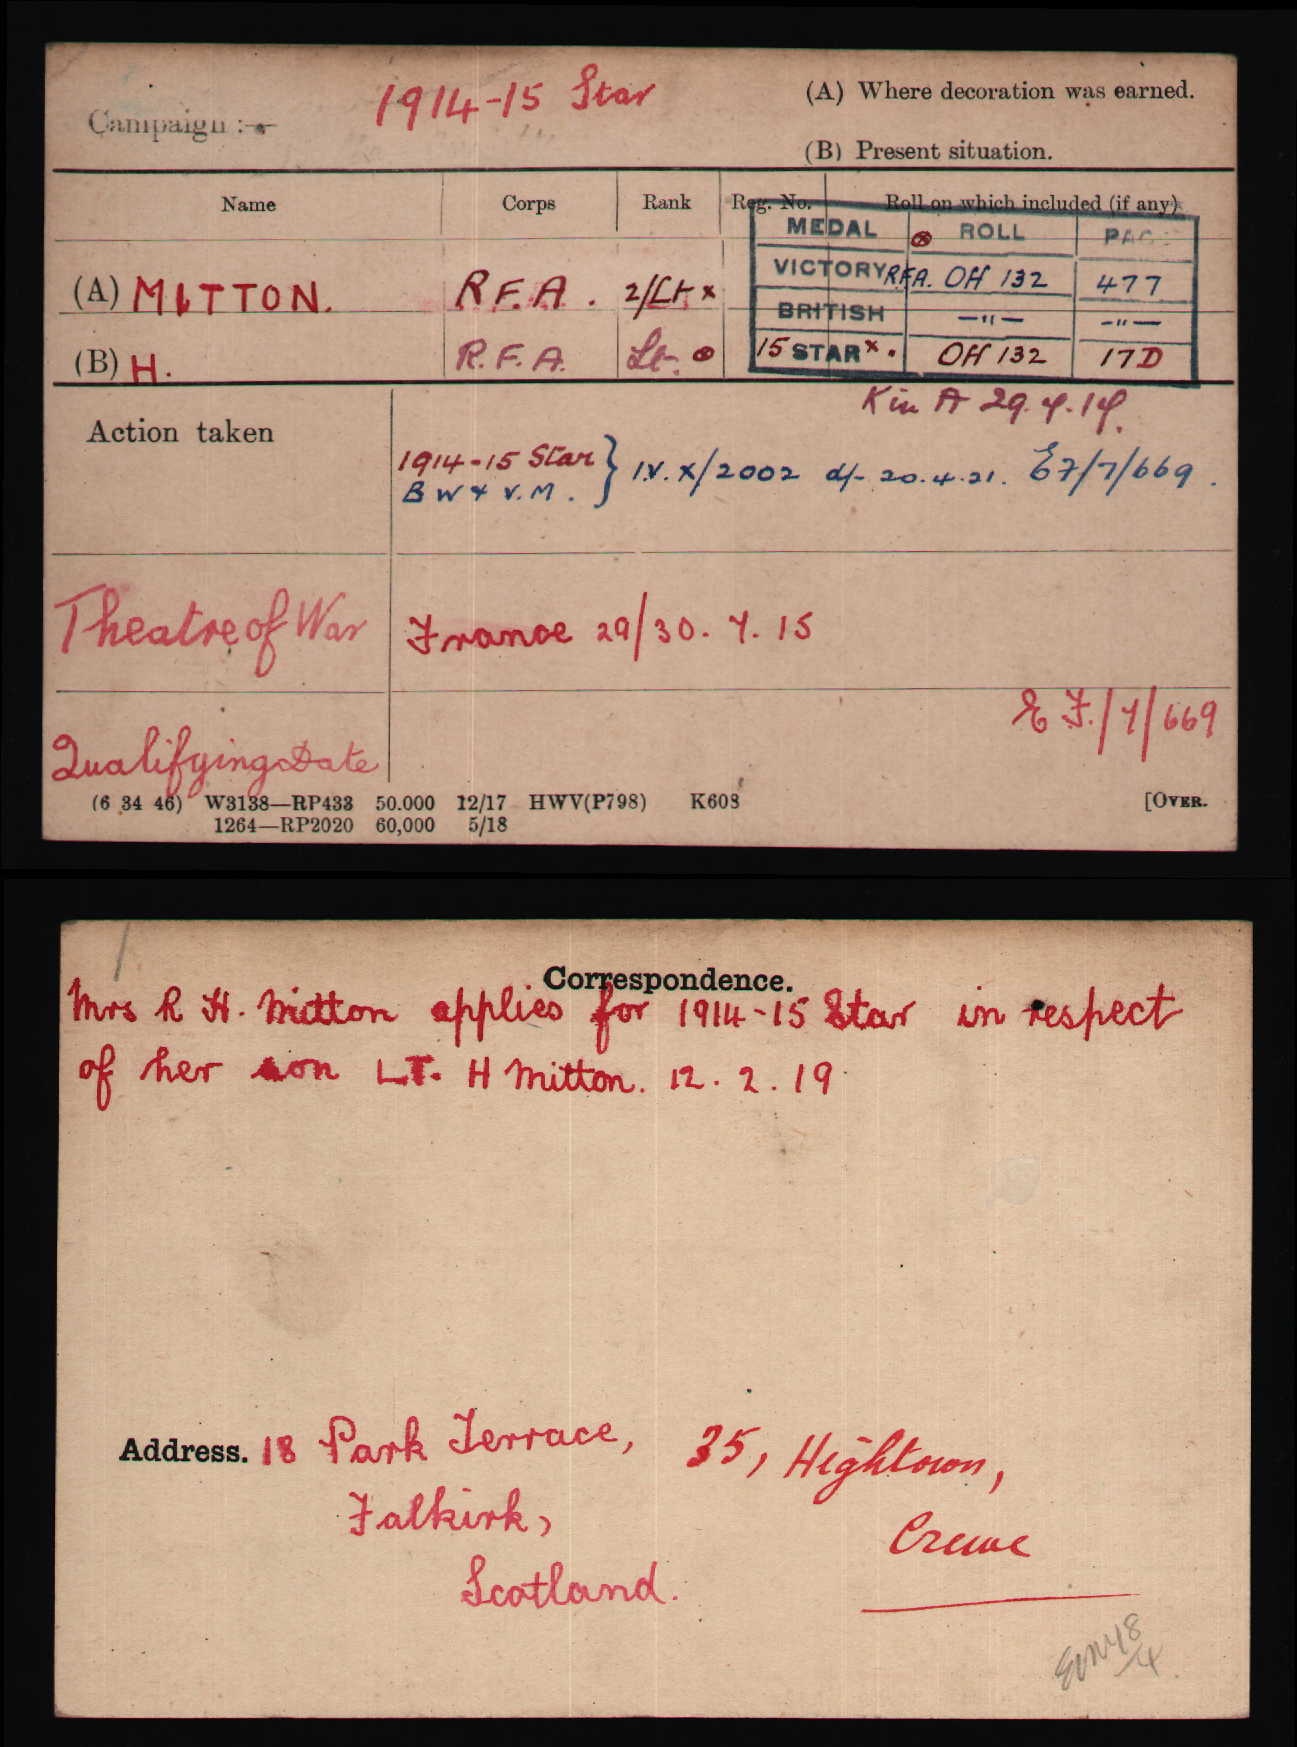 Campaign :—
1914-15 Star
(A) Where decoration was earned.
(B) Present situation.
Name Corps Rank Reg. No. Roll on which included (if any)
MEDAL ROLL PAGE
(A) MITTON. R.F.A. 2/Lt x VICTORY R.F.A. OH 132 477
BRITISH —"— —"—
(B) H. R.F.A. Lt. 15 STAR x. OH 132 17D
K in A 29.4.18.
Action taken
1914-15 Star } I.V. X/2002 d/- 20.4.21. E7/7/669.
B W & V.M.
Theatre of War France 29/30. 7. 15
E F./7/669
Qualifying Date
(6 34 46) W3138—RP433 50.000 12/17 HWV(P798) K608 [OVER.
1264—RP2020 60,000 5/18
Correspondence.
Mrs R H. Mitton applies for 1914-15 Star in respect
of her son LT. H Mitton. 12.2.19
Address. 18 Park Terrace, 35, Hightown,
Falkirk, Crewe
Scotland.